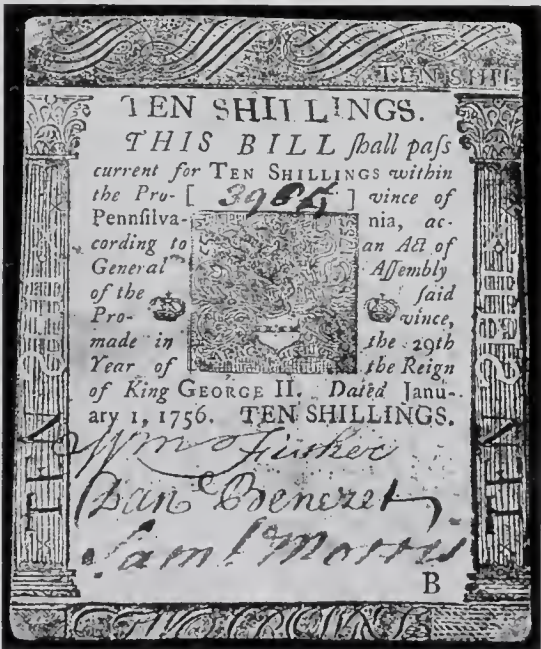 TEN SHIL
TEN SHILLINGS.
THIS BILL ſhall paſs
current for TEN SHILLINGS within
the Pro- [ ] vince of
Pennſilva- nia, ac-
cording to an Act of
General Aſſembly
of the ſaid
Pro- vince,
made in the 29th
Year of the Reign
of King GEORGE II. Dated Janu-
ary 1, 1756. TEN SHILLINGS.
Wm Fisher
Danl Benezet
Saml Morris
B
TEN SHILLINGS
TEN SHILLINGS